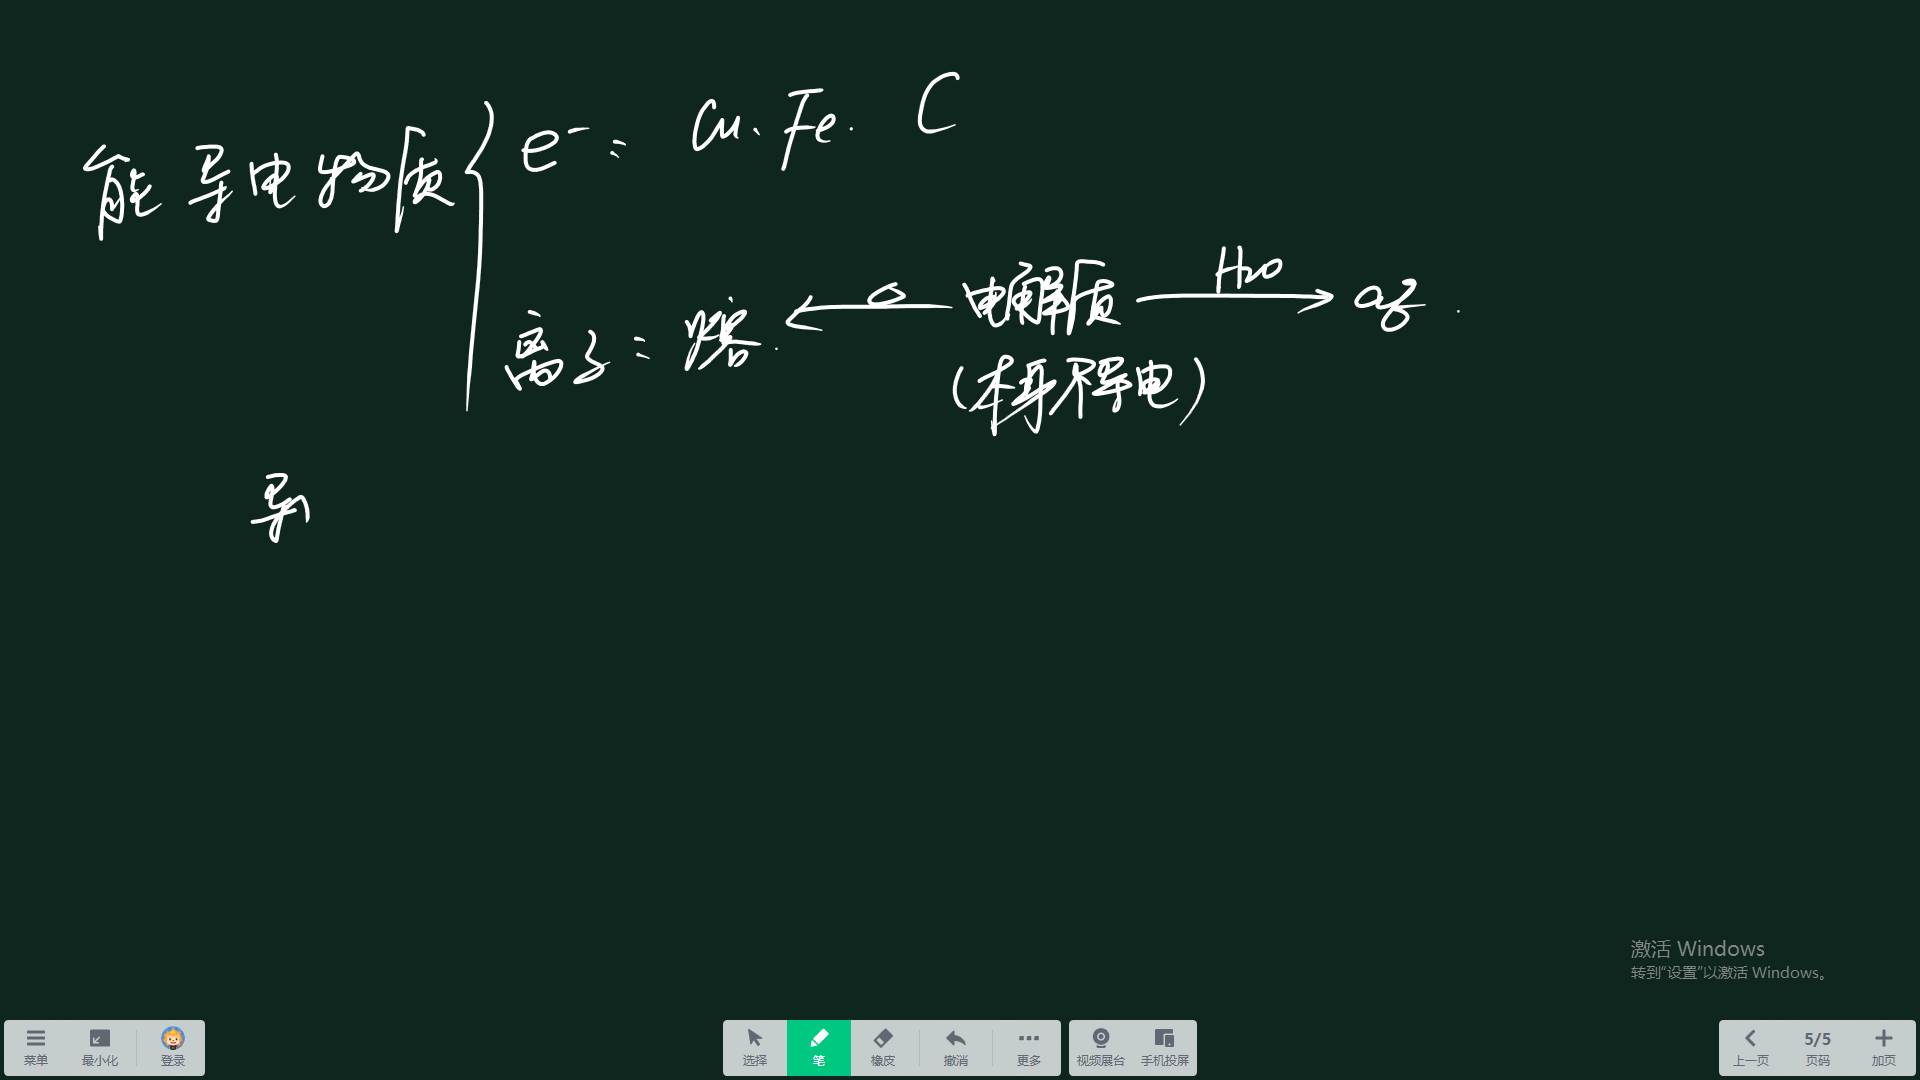 能导电物质 { e⁻: Cu、Fe. C
离子: 熔. ←△ 电解质 H₂O→ aq.
(本身不导电)
导
激活 Windows
转到“设置”以激活 Windows。
菜单 最小化 登录 选择 笔 橡皮 撤消 更多 视频展台 手机投屏 上一页 5/5 页码 加页